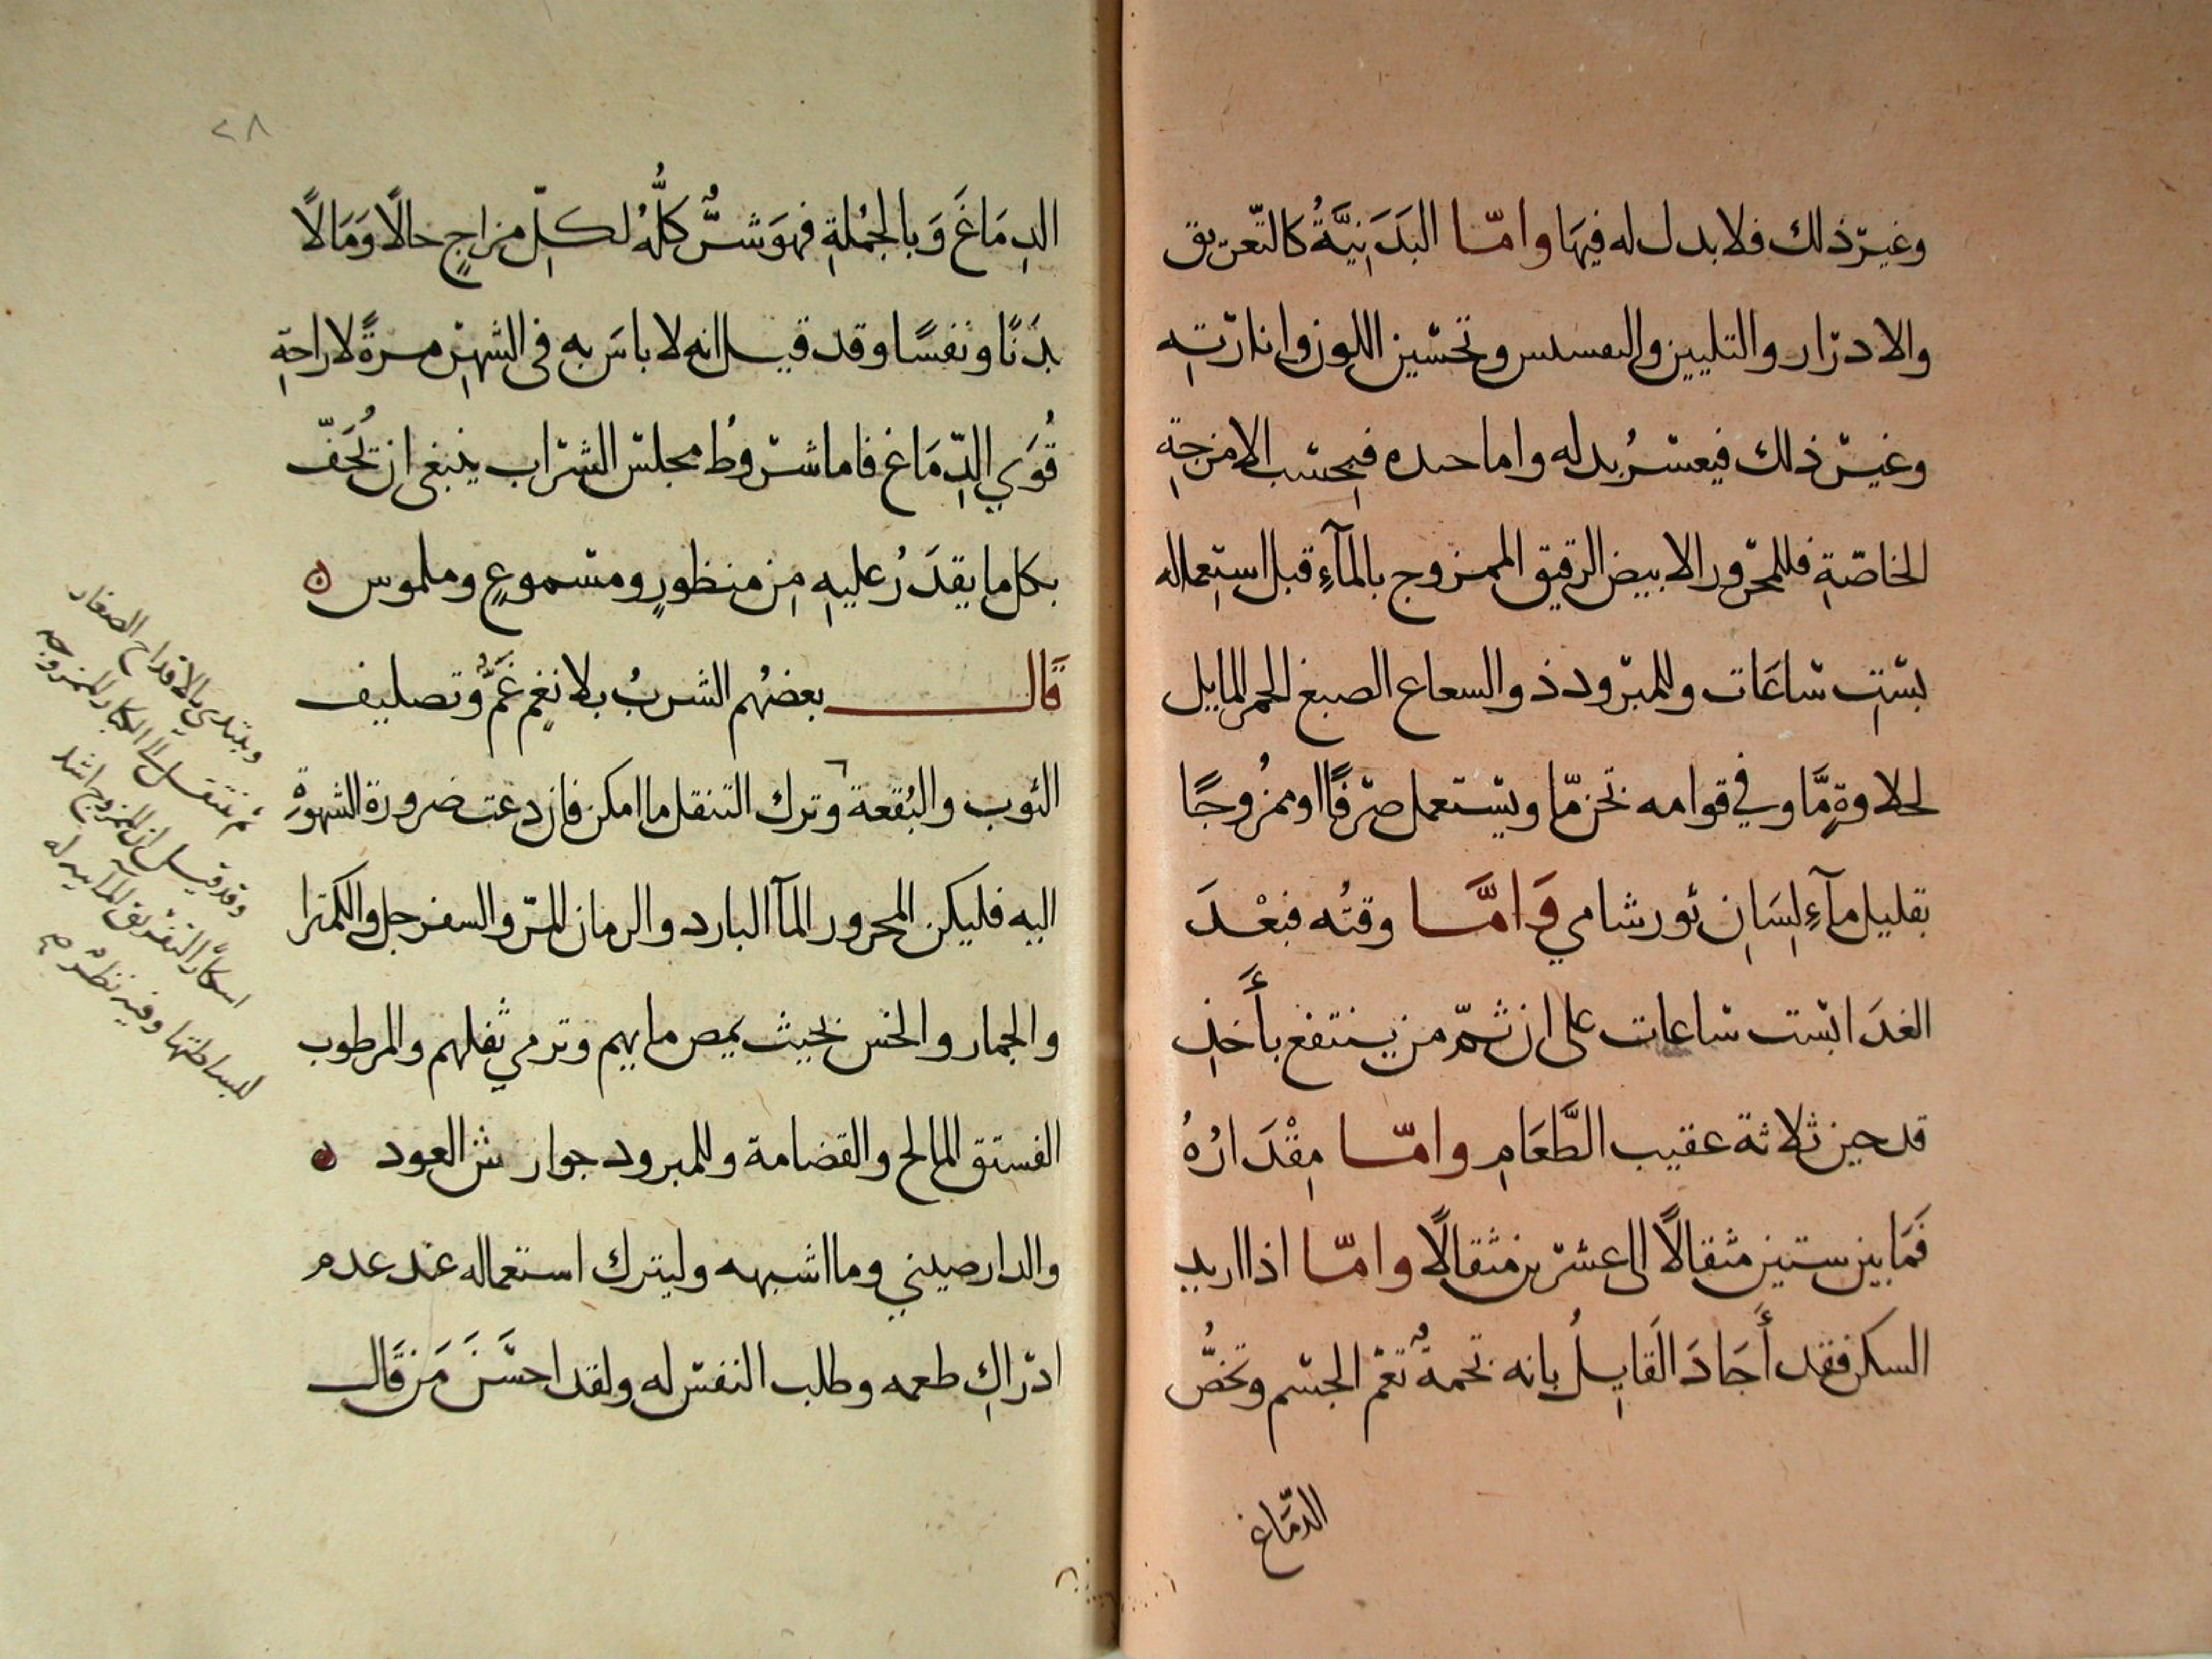 وغير ذلك فلا بدل له فيها وامّا البَدَنِيَّةُ كالتّعريق
والادرار والتليين والتفسس وتحسين اللون وانارتِه
وغير ذلك فيعسُر بدله واما حده فبِحسَب الامزجةِ
الخاصّةِ فللمحرور الابيض الرقيق الممزوج بالمآءِ قبل استِعماله
بستِ ساعَات وللمبرود ذو السعاع الصبغ الحمر المايل
لحلاوةٍ مَّا وفي قوامه تخن مّا ويستعمل صرفًا او ممزُوجًا
بقليل مآءِ لِسَانِ ثور شامي وَامَّا وقتُه فبعْدَ
الغدَا بست ساعات على ان ثمّ من ينتفع بأَخذِ
قدحين ثلاثة عقيب الطَّعَامِ وامّا مِقْدَارُهُ
فَمَا بين ستين مثقالًا الى عشرين مثقالًا وامّا اذا اريد
السكر فقد أَجَادَ القَايِلُ بانه تخمةٌ تعُم الجسم وتخُصُّ
الدّمَاغ
٢٨
الدِمَاغَ وَبالجُملةِ فهوَ شرٌّ كلُّهُ لكلِّ مزاجٍ حالًا وَمَالًا
بدَنًا ونفسًا وقد قيل انه لا باسَ به في الشهرِ مرةً لاراحةِ
قُوَي الدِّمَاغ فاما شروطُ مجلس الشراب ينبغي ان تُحَفّ
بكل ما يقدَرُ عليهِ مِن منظورٍ ومسموعٍ وملموس ه
قَال بعضُهم الشربُ بلا نغمٍ غَمٌّ وتصليف
الثوب والبُقعة وترك التنقل ما امكن فان دعت ضرورة الشهوة
اليه فليكن المحرور المآ البارد والرمان المز والسفرجل والكمثرا
والجمار والخس بحيث يمص مايهم وترمي ثفلهم والمرطوب
الفستق المالح والقضامة وللمبرود جوارش العود ه
والدارصيني وما اشبهه وليترك استعماله عند عدم
ادراكِ طعمه وطلب النفس له ولقد احسَنَ مَن قَال
ويبتدي بالاقداح الصغار
ثم ينتقل الى الكبار الممزوجه
وقد قيل ان الممزوج اشد
اسكارًا لتفريق المآ ... له
لبساطتها وفيه نظر م